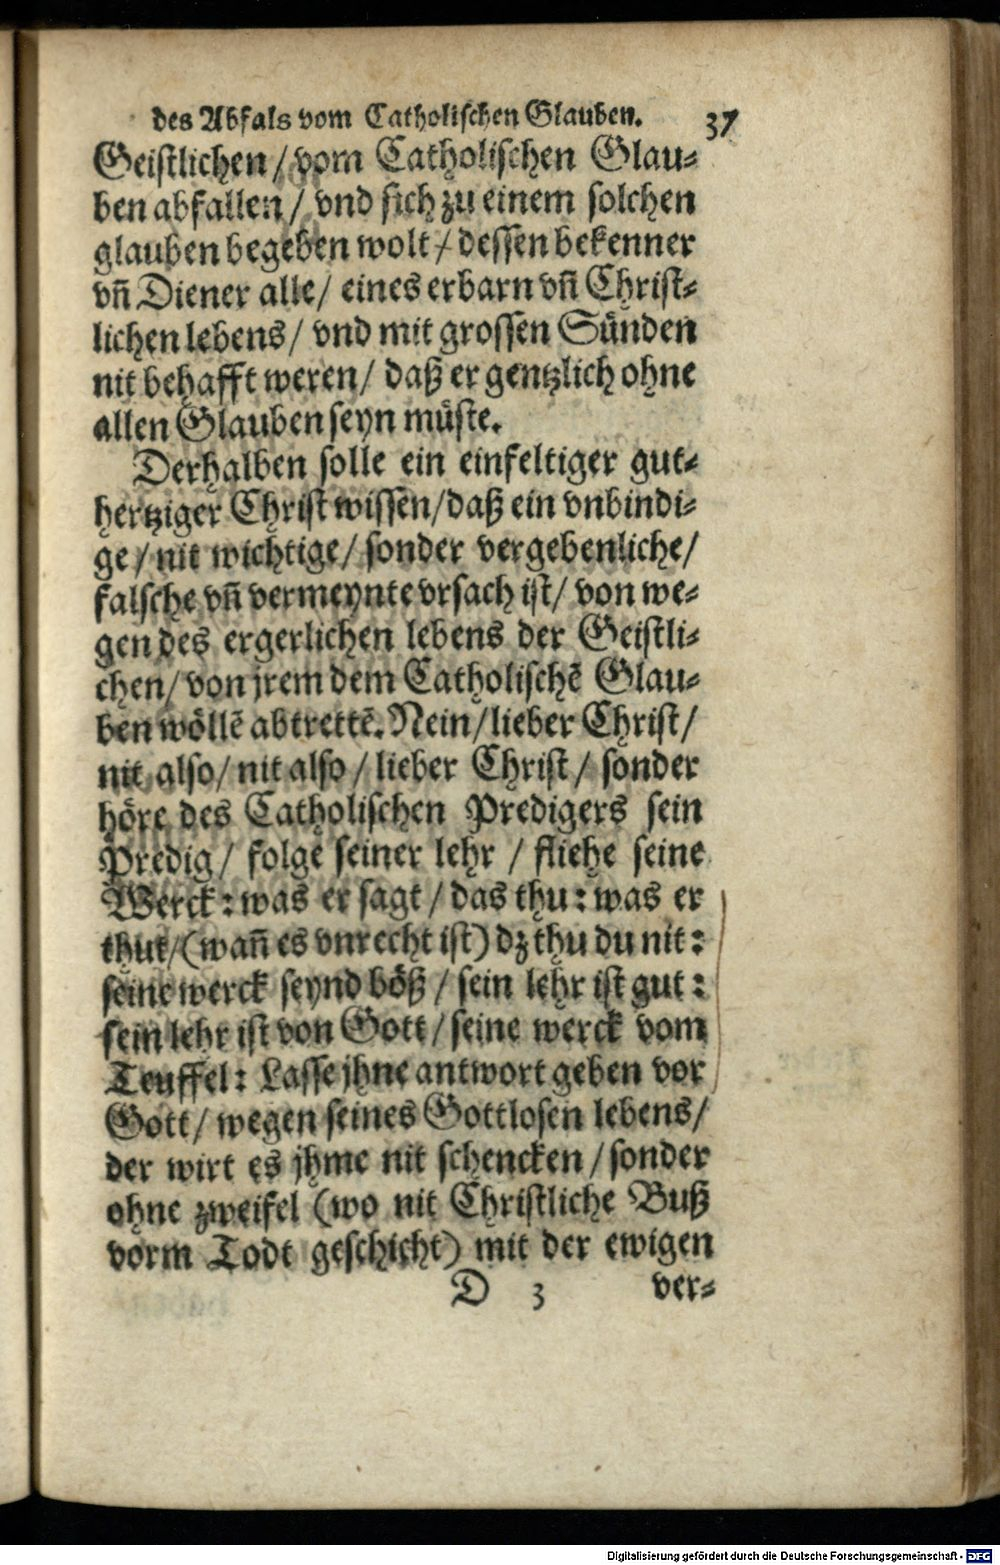 des Abfals vom Catholischen Glauben. 37
Geistlichen / vom Catholischen Glau⸗
ben abfallen / vnd sich zu einem solchen
glauben begeben wolt / dessen bekenner
vñ Diener alle / eines erbarn vñ Christ⸗
lichen lebens / vnd mit grossen Sünden
nit behafft weren / daß er gentzlich ohne
allen Glauben seyn müste.
Derhalben solle ein einfeltiger gut⸗
hertziger Christ wissen / daß ein vnbindi⸗
ge / nit wichtige / sonder vergebenliche /
falsche vñ vermeynte vrsach ist / von we⸗
gen des ergerlichen lebens der Geistli⸗
chen / von jrem dem Catholischẽ Glau⸗
ben wöllẽ abtrettẽ. Nein / lieber Christ /
nit also / nit also / lieber Christ / sonder
höre des Catholischen Predigers sein
Predig / folge seiner lehr / fliehe seine
Werck: was er sagt / das thu: was er
thut / (wañ es vnrecht ist) dz thu du nit:
seine werck seynd böß / sein lehr ist gut:
sein lehr ist von Gott / seine werck vom
Teuffel: Lasse jhne antwort geben vor
Gott / wegen seines Gottlosen lebens /
der wirt es jhme nit schencken / sonder
ohne zweifel (wo nit Christliche Buß
vorm Todt geschicht) mit der ewigen
D 3 ver⸗
Digitalisierung gefördert durch die Deutsche Forschungsgemeinschaft - DFG